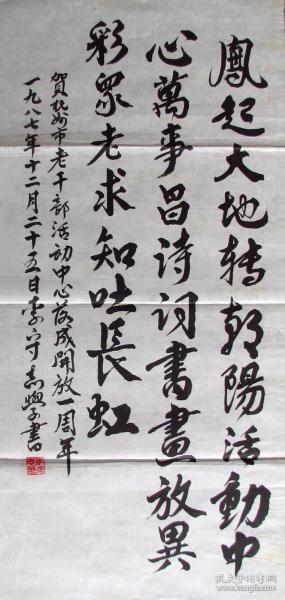 鳳起大地转朝陽活動中
心萬事昌诗词書畫放異
彩眾老求知吐長虹
賀杭州市老干部活动中心落成開放一周年
一九八七年十二月二十五日李守
書